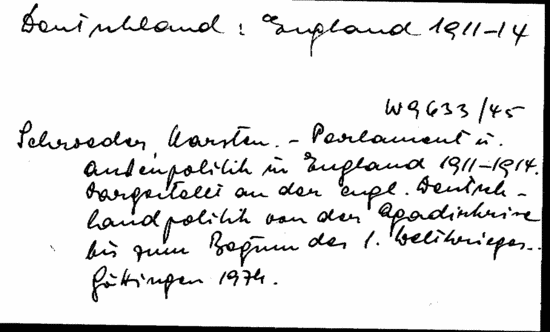 Deutschland : England 1911-14
W9633/45
Schroeder, Karsten. - Parlament u.
Außenpolitik in England 1911-1914.
Dargestellt an der engl. Deutsch-
landpolitik von der Agadirkrise
bis zum Beginn des 1. Weltkrieges.
Göttingen 1974.